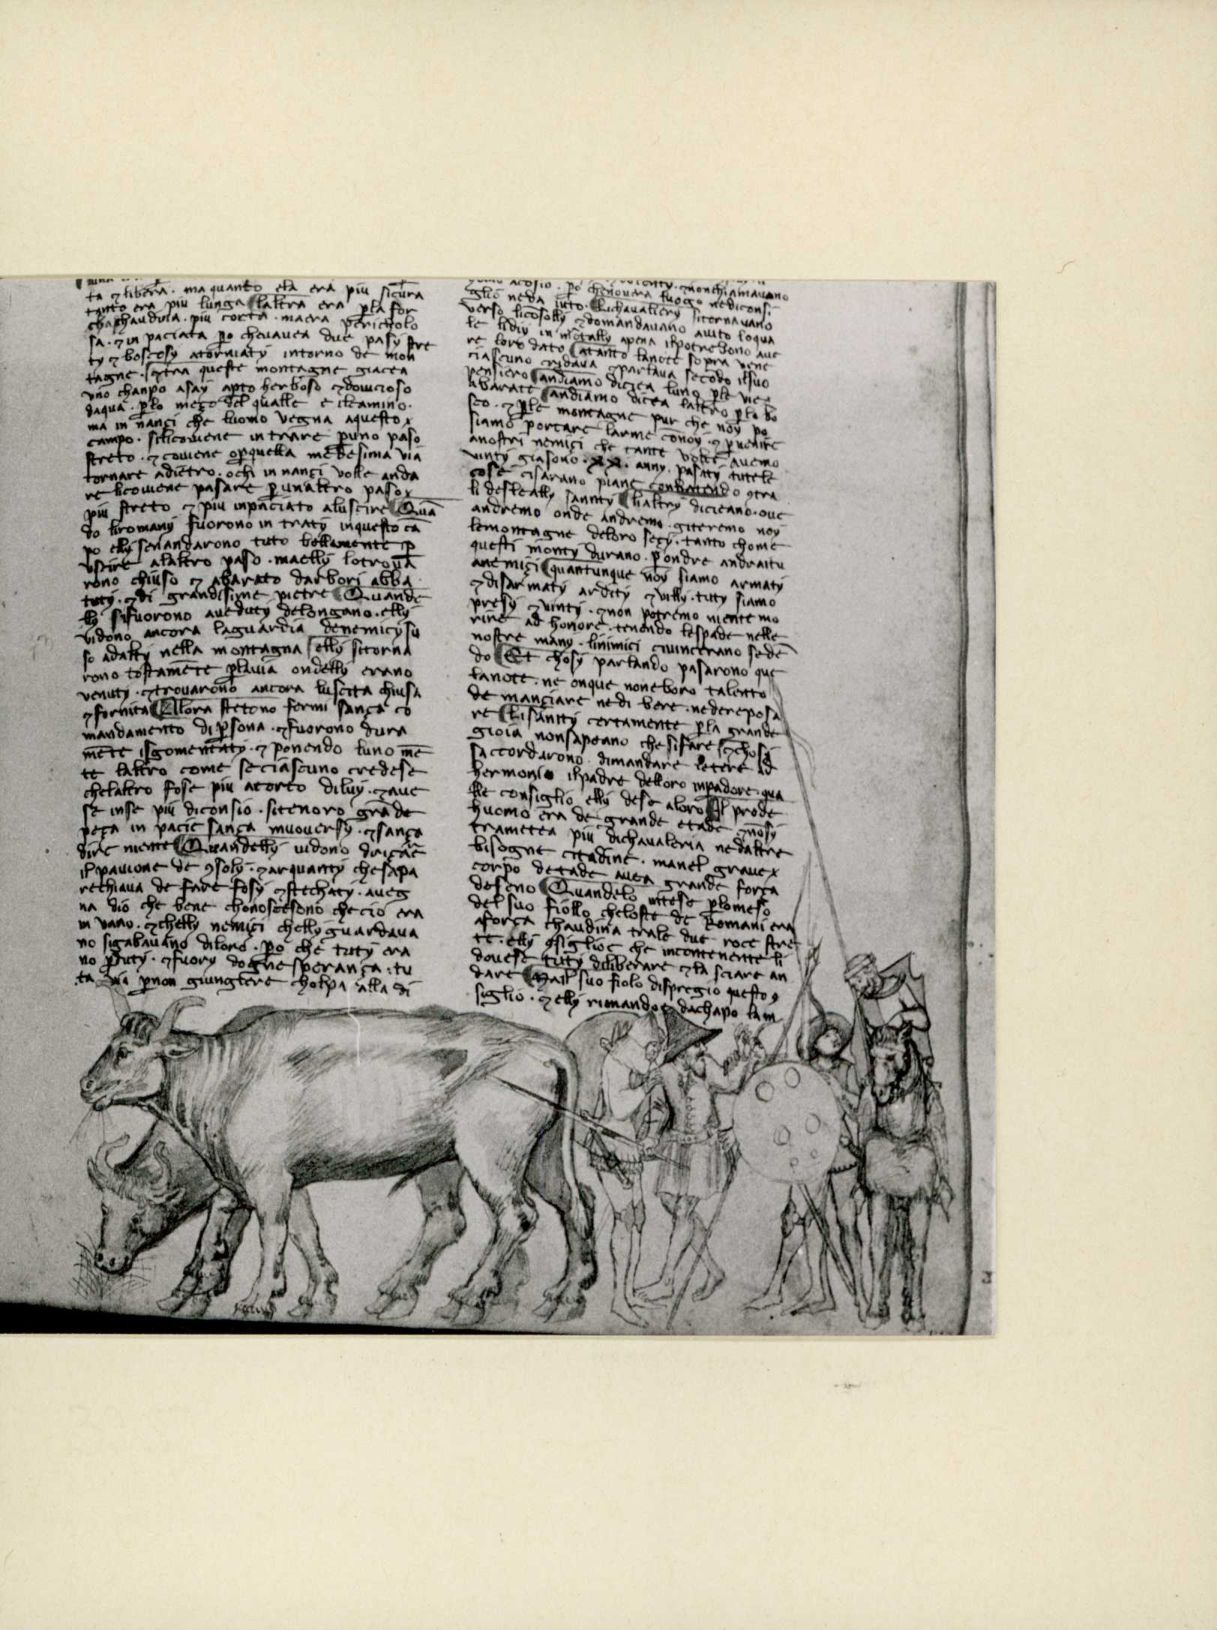 ta ⁊ libera · ma quanto ela era piu sicura
tanto era piu lunga laltra era p la for
cha chaudina · piu corta · ma era pericholo
sa · ⁊ in paciata po che uauea due pasy stre
ty ⁊ boscosy atorniaty intorno de mon
tagne · ⁊ tra queste montagne giacea
uno chanpo asay apto herboso ⁊ douicioso
daqua · p lo mezo del qualle e il camino ·
ma in nanci che luomo uegna a questo
campo · sili couiene intrare p uno paso
streto · ⁊ couiene o p quella medesima uia
tornare adietro · o chi in nanci volle anda
re li couiene pasare p un altro paso
piu streto ⁊ piu inpaciato a luscire Quā
do li romany fuorono in traty in questo cā
po elly sen andarono tuto bellamente p
uscire a laltro paso · ma elly lo troua
rono chiuso ⁊ abarato darbori abba
tuty · ⁊ di grandisime pietre Quande
lly si fuorono aueduty de longano · elly
uidono ancora la guardia de nemicy su
so adalty nella montagna elly si torna
rono tostamēte p la uia ondelly erano
uenuty · ⁊ trouarono ancora luscita chiusa
⁊ fornita Allora stetono fermi sanza co
mandamento di psona · ⁊ fuorono dura
mēte isgomentaty · ⁊ ponendo luno mē
te laltro come se ciascuno credese
che laltro fose piu acorto di luy · ⁊ aue
se in se piu di consio · si tenoro grāde
peza in pacie sanza muouersy · ⁊ sanza
dire niente Quandelly uidono driçare
il pauione de ꝯsoly · ⁊ arquanty che sapa
rechiaua de fare fosy ⁊ stechaty · aueg
na dio che bene chonoscesono che cio era
in uano · ⁊ chelly nemici chelly guardaua
no si gabauano di loro · po che tuty era
no pduty · ⁊ fuory dogne speranza : tu
ta uia p non giungiere cholpa alla di
glio ne da iuto · Li chauallery si tornauano
verso li cosolly ⁊ domandauano aiuto loqua
le li diy in mortally apena il potrebono aue
re loro dato atanto la note sopra vene
ciascuno cridaua ⁊ parlaua secōdo il suo
pensiero andiamo dicea luno p le vie
abarate andiamo dicea laltro p lo bo
sco · ⁊ p le montagne pur che noy po
siamo portare larme con noy · ⁊ puenire
a nostri nemici che tante volte auemo
vinty gia sono · xx · anny · pasaty tute le
cose ci sarano piane conbatendo ꝯtra
li desleally sannity li altry diceano · oue
andremo onde andremo · giteremo noy
le montagne de loro seçy · tanto chome
questi monty durano · p ondre andraitu
a nemici quantunque noy siamo armaty
⁊ disarmaty ardity ⁊ villy · tuty siamo
presy ⁊ vinty · ⁊ non potremo niente mo
rire ad honore · tenendo le spade nelle
nostre many · li nimici ci vincerano sedē
do Et chosy parlando pasarono que
la note · ne onque non eboro talento
de manziare ne di bere · ne de reposa
re Li sanity certamente p la grande
gioia non sapeano che si fare ⁊ chosi
saccordarono · di mandare letere ad
hermonio il padre delloro inpadore · qua
lle consiglio elly dese a loro Il prode
huomo era de grande etade ⁊ nosi
trametea piu di chavaleria ne daltre
bisogne citadine · ma nel graue
corpo de etade auea grande força
de seno Quandelo intese p lo meso
del suo fiollo che loste de Romani era
a força chaudina tra le due roce stre
te · elly ꝯsiglioe che incontenente li
douese tuty diliberare ⁊ lasciare an
dare Ma il suo fiolo dispregio questo ꝯ
siglio · ⁊ elly rimando da chapo lam